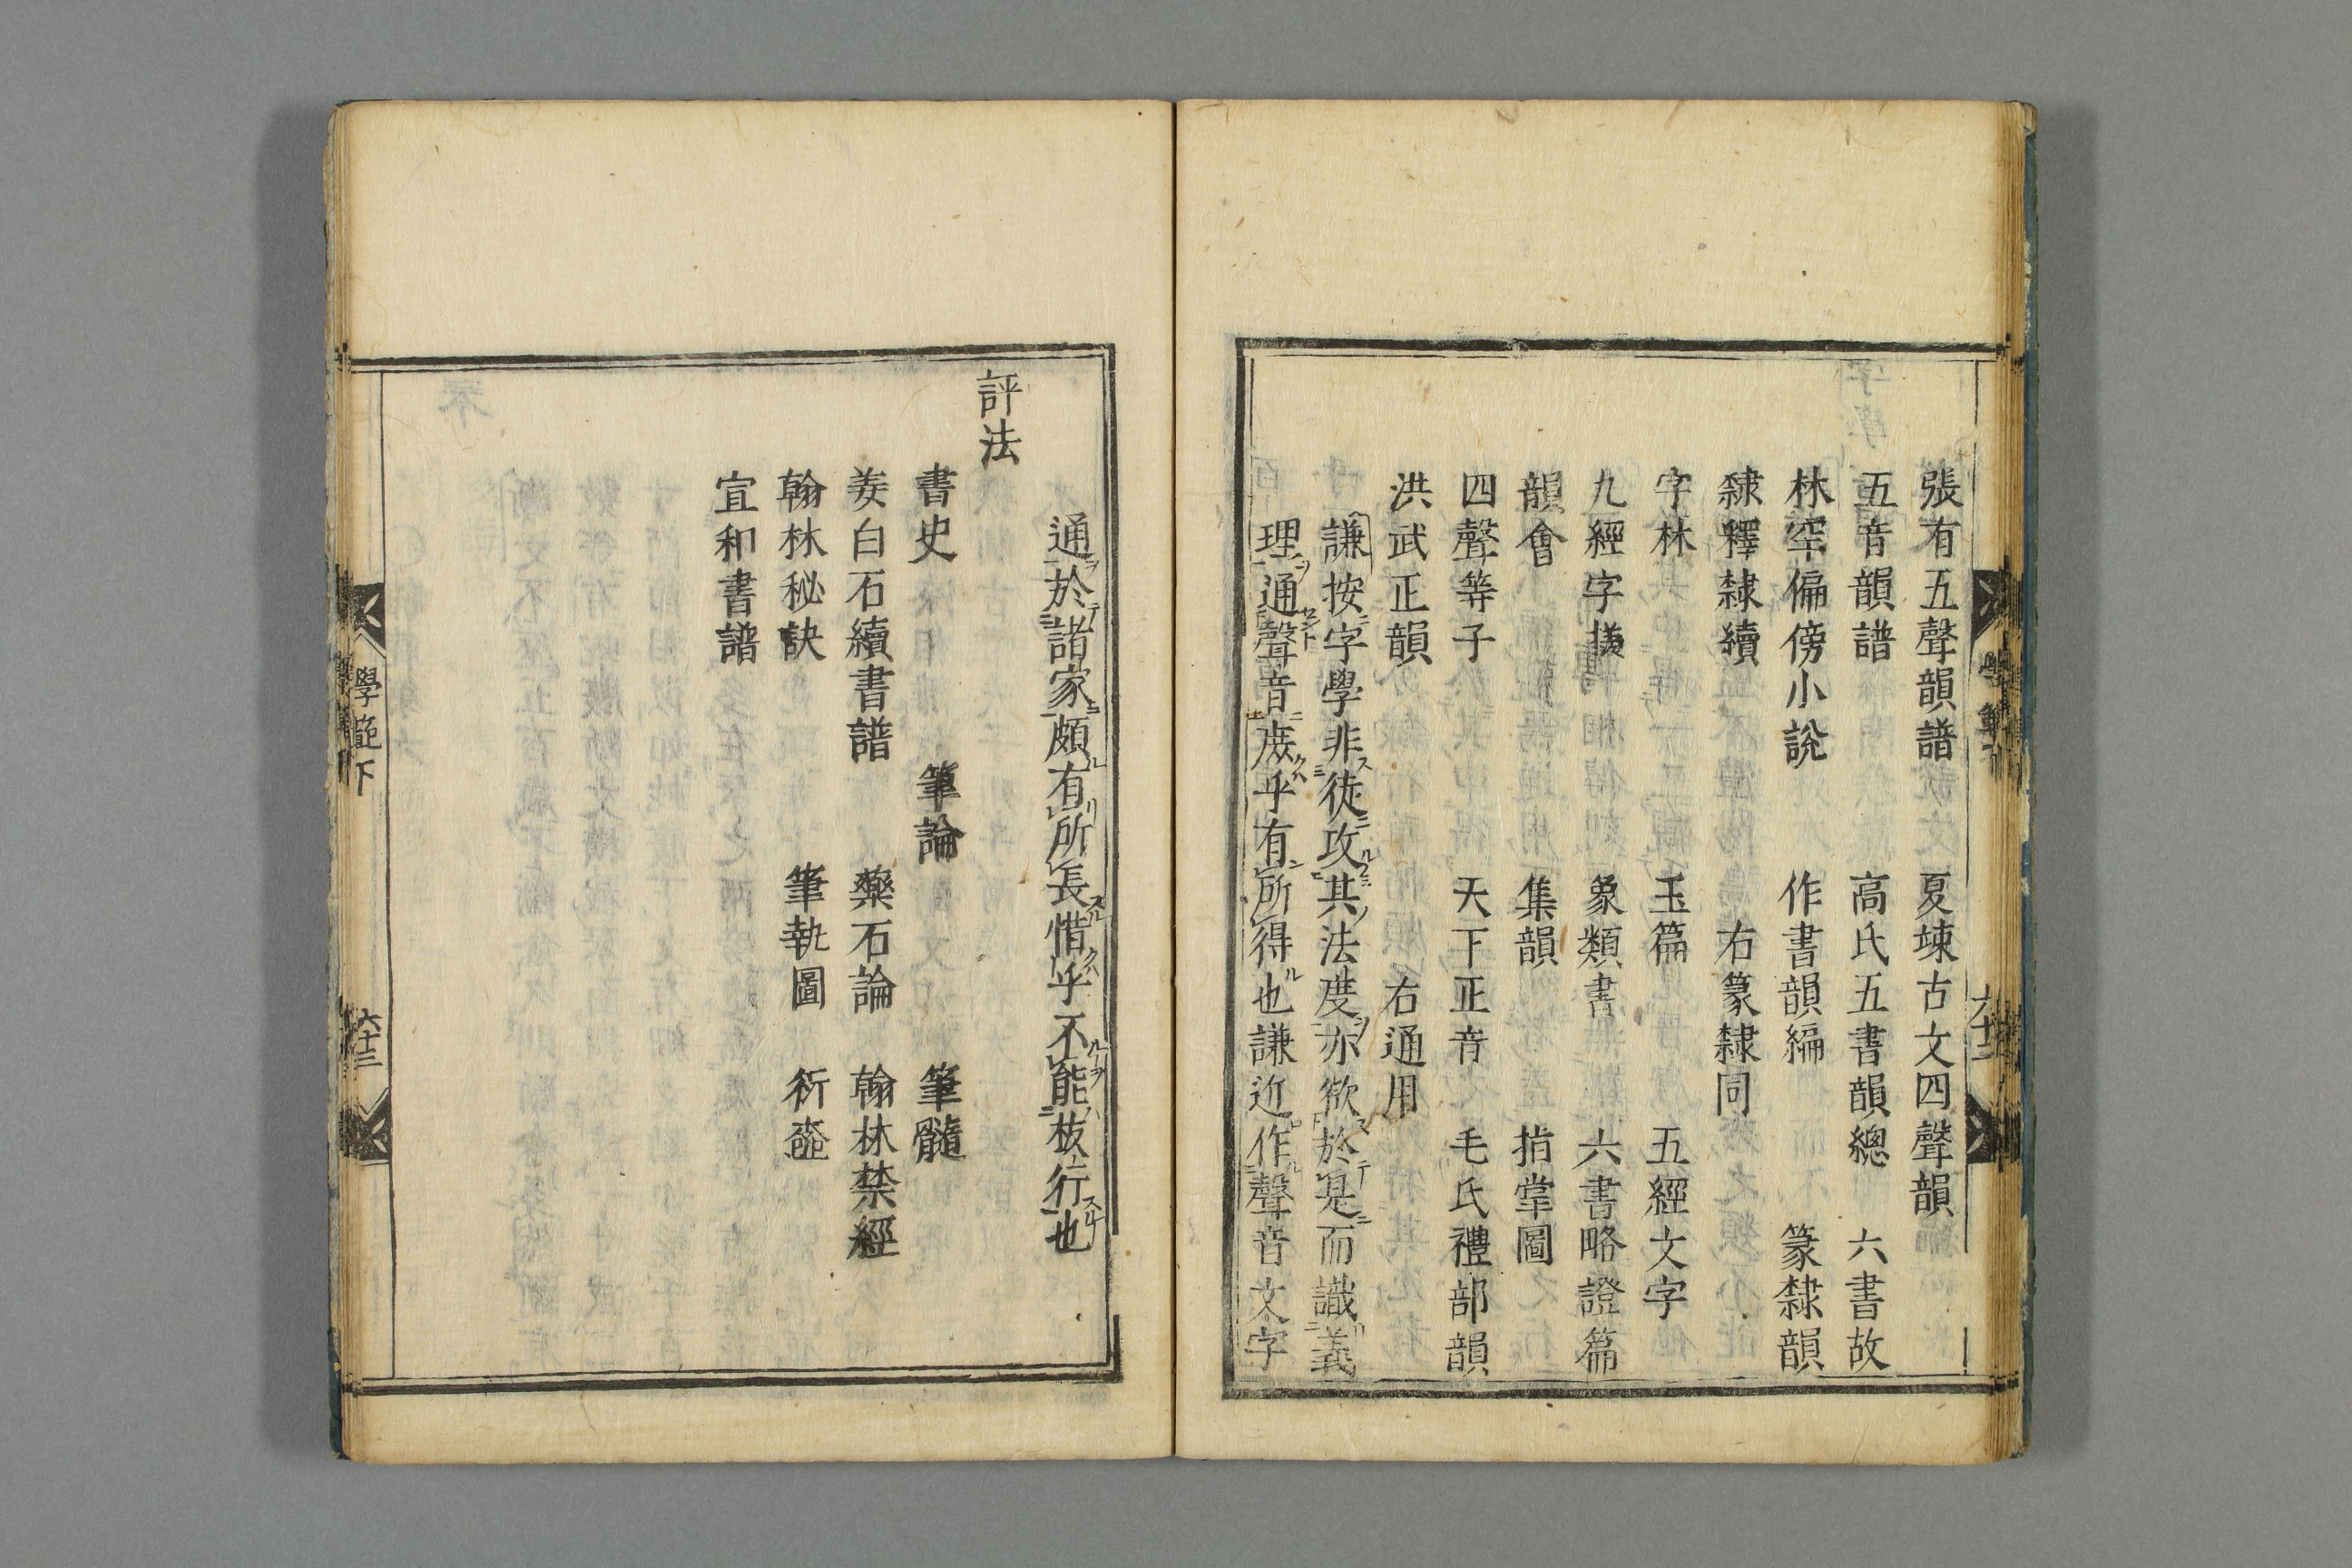 張有五聲韻譜　夏竦古文四聲韻
五音韻譜　高氏五書韻總　六書故
林罕偏傍小說　作書韻編　篆隸韻
隸釋隸續　右篆隸同
字林　玉篇　五經文字
九經字㨾　象類書　六書略證篇
韻會　集韻　指掌圖
四聲等子　天下正音　毛氏禮部韻
洪武正韻　右通用
謙按字學非徒攻其法度亦欲於是而識義
理通聲音庶乎有所得也謙近作聲音文字
通於諸家頗有所長惜乎不能板行也
評法
書史　筆論　筆髓
姜白石續書譜　藥石論　翰林禁經
翰林秘訣　筆執圖　衍𠫤
宣和書譜
學範下
六十三